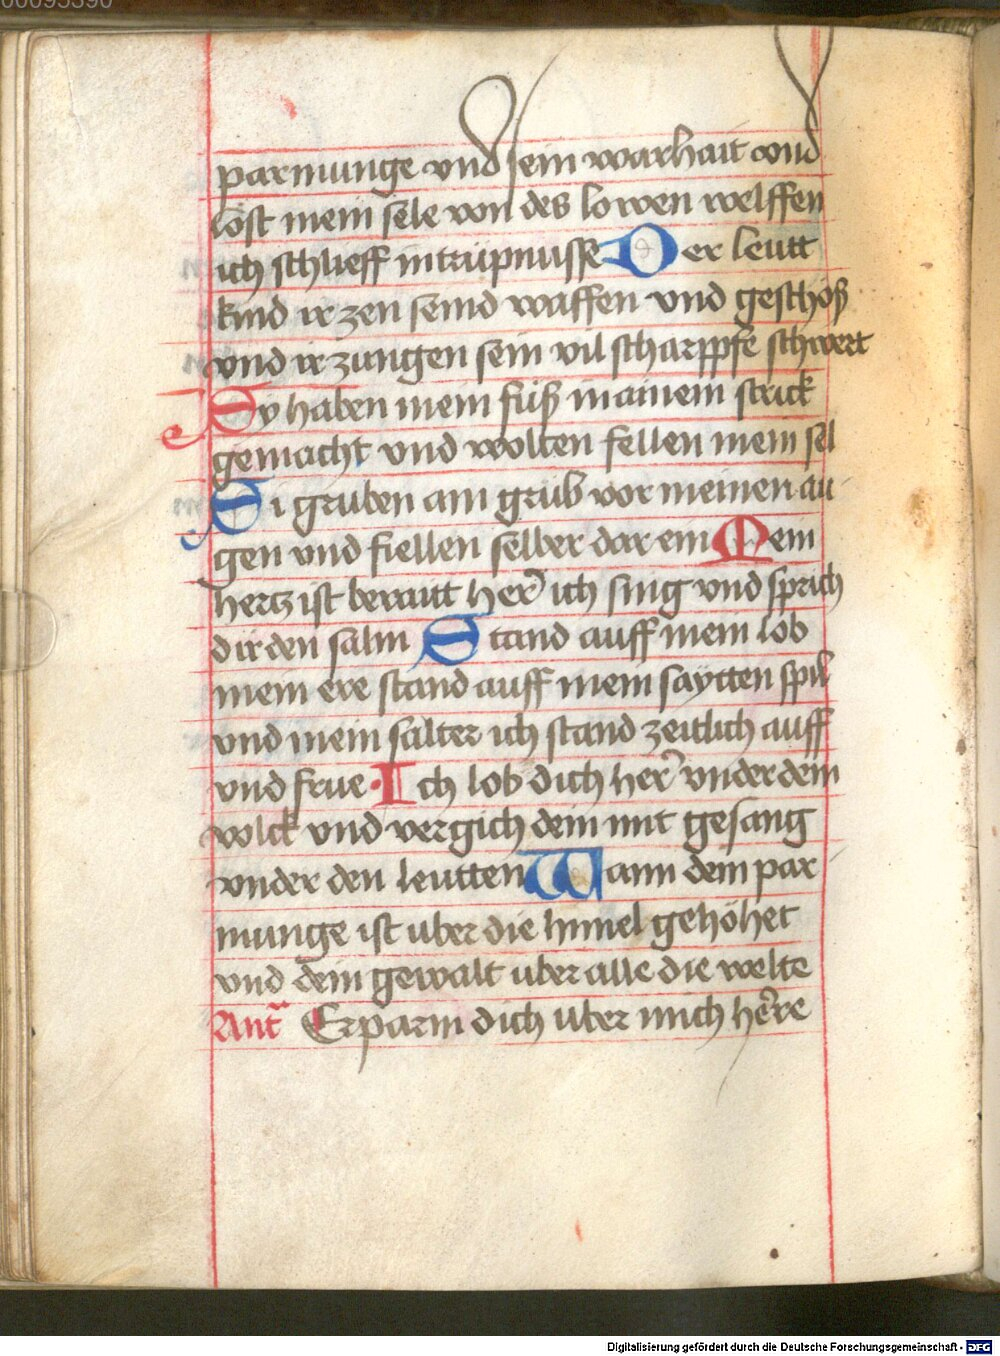 00095390
parmunge vnd sein warhait vnd
löst mein sele von des lowen welffen
ich schlieff intrüpnusse Der leutt
kind ir zen seind waffen vnd geschöß
vnd ir zungen sein vil scharppfe schwert
Sy haben mein füß in ainem strick
gemacht vnd wolten fellen mein sel
Si gruben ain grub vor meinen au
gen vnd fiellen selber dar ein Mein
hertz ist berait her̄ ich sing vnd sprich
dir den salm Stand auff mein lob
mein ere stand auff mein saytten spil
vnd mein salter ich stand zeitlich auff
vnd frue · Ich lob dich her̄ vnder dem
volck vnd vergich dein mit gesang
vnder den leutten Wann dein par
munge ist uber die himel gehöhet
vnd dein gewalt uber alle die welte
Ant̄ Erparm dich uber mich her̄e
Digitalisierung gefördert durch die Deutsche Forschungsgemeinschaft - DFG